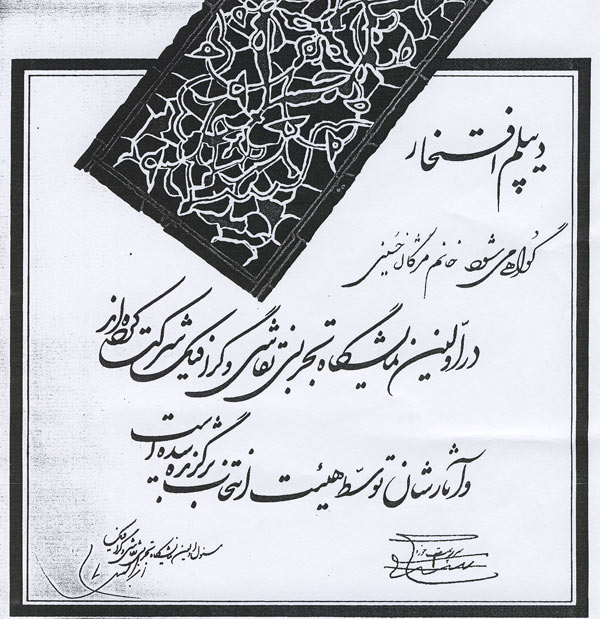 دیپلم افتخار
گواهی می‌شود خانم مژگان حسینی
در اولین نمایشگاه تجربی نقاشی و گرافیک شرکت کرده‌اند
و آثارشان توسط هیئت انتخاب برگزیده شده است
مسئول اولین نمایشگاه تجربی نقاشی و گرافیک